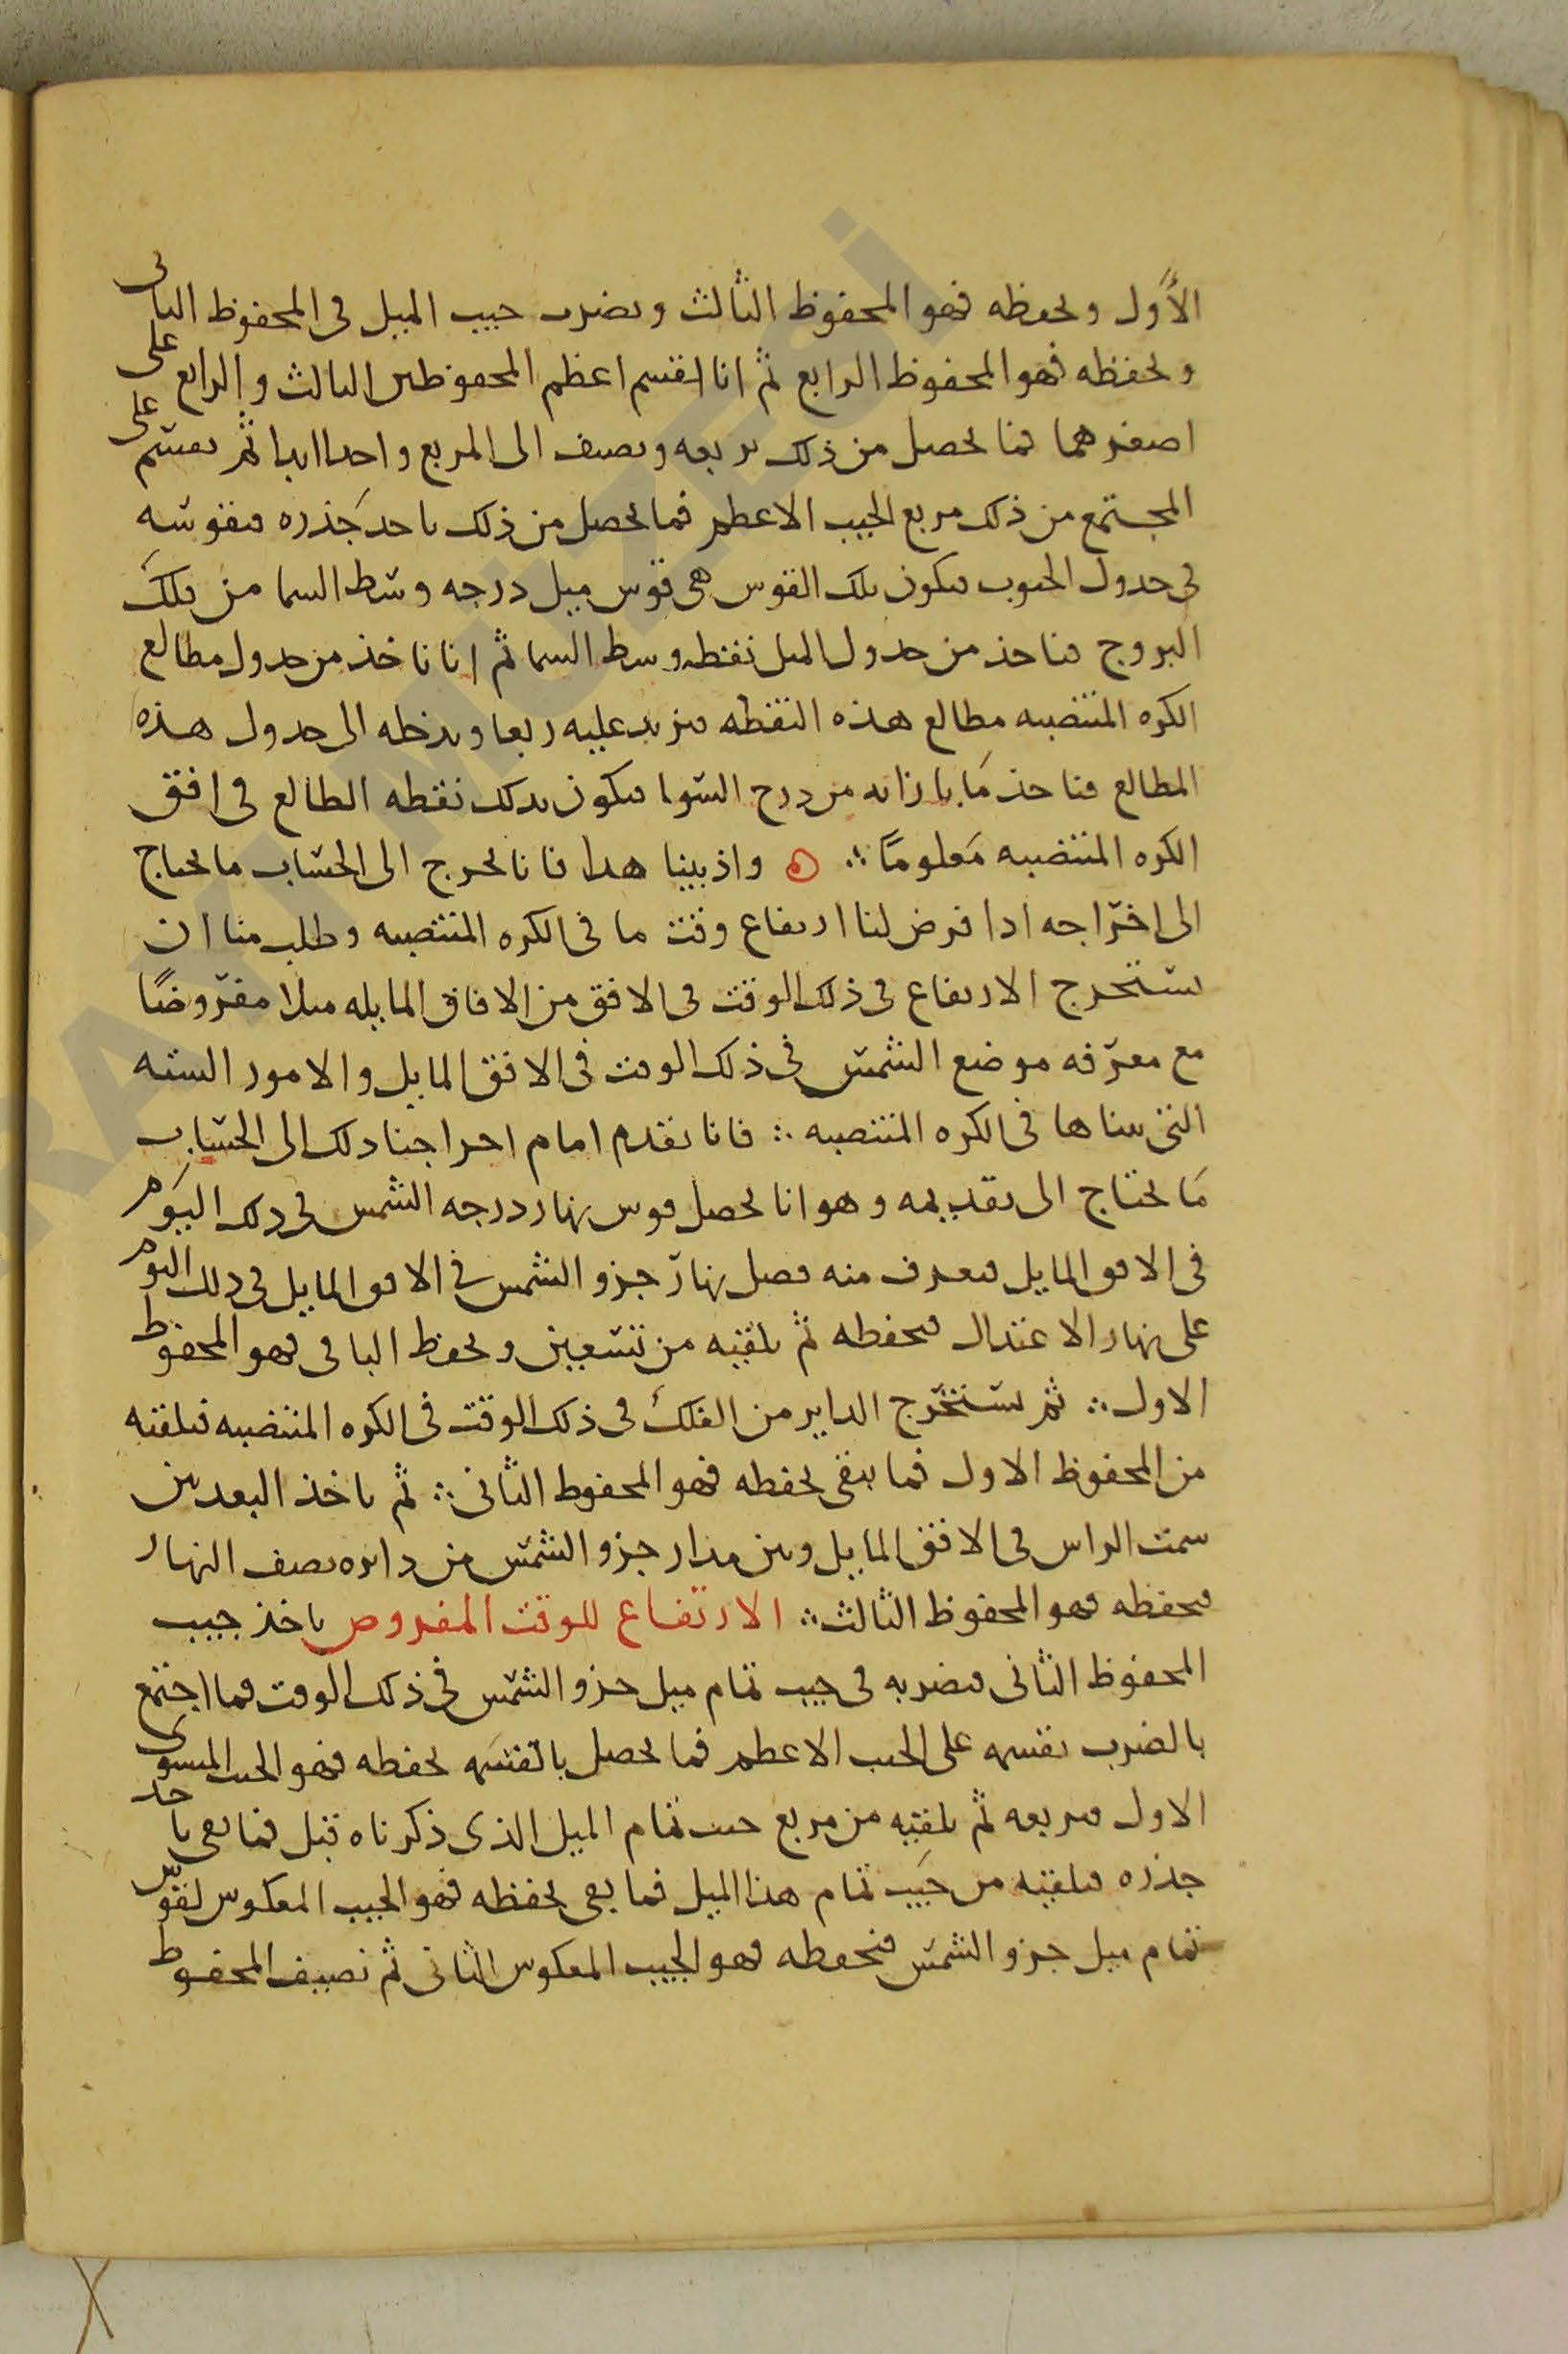 الأول ونحفظه فهو المحفوظ الثالث ونضرب جيب الميل في المحفوظ الثاني
ونحفظه فهو المحفوظ الرابع ثم انا نقسم اعظم المحفوظين الثالث والرابع على
اصغرهما فما يحصل من ذلك نربعه ونضيف الى المربع واحدا ابدا ثم نقسم على
المجتمع من ذلك مربع الجيب الاعظم فما يحصل من ذلك ناخذ جذره فنقوسه
في جدول الجيوب فيكون تلك القوس هي قوس ميل درجه وسط السما من فلك
البروج فناخذ من جدول الميل نقطه وسط السما ثم انا ناخذ من جدول مطالع
الكره المنتصبه مطالع هذه النقطه فنزيد عليه ربعا وندخله الى جدول هذه
المطالع فناخذ ما بازائه من درج السوا فيكون بذلك نقطه الطالع في افق
الكره المنتصبه معلومًا ∴ ه واذ بينا هذا فانا نخرج الى الحساب ما نحتاج
الى اخراجه اذا فرض لنا ارتفاع وقت ما في الكره المنتصبه وطلب منا ان
نستخرج الارتفاع في ذلك الوقت في الافق من الافاق المايله ميلا مفروضًا
مع معرفه موضع الشمس في ذلك الوقت في الافق المايل والامور السته
التي بيناها في الكره المنتصبه ∴ فانا نقدم امام اخراجنا ذلك الى الحساب
ما نحتاج الى تقديمه وهو انا نحصل قوس نهار درجه الشمس في ذلك اليوم
في الافق المايل فنعرف منه فضل نهار جزو الشمس في الافق المايل في ذلك اليوم
على نهار الاعتدال فنحفظه ثم نلقيه من تسعين ونحفظ الباقي فهو المحفوظ
الاول ∴ ثم نستخرج الداير من الفلك في ذلك الوقت في الكره المنتصبه فنلقيه
من المحفوظ الاول فما يبقى نحفظه فهو المحفوظ الثاني ∴ ثم ناخذ البعد بين
سمت الراس في الافق المايل وبين مدار جزو الشمس من دائره نصف النهار
فنحفظه فهو المحفوظ الثالث ∴ الارتفاع للوقت المفروض ناخذ جيب
المحفوظ الثاني فنضربه في جيب تمام ميل جزو الشمس في ذلك الوقت فما اجتمع
بالضرب نقسمه على الجيب الاعظم فما يحصل بالقسمه نحفظه فهو الجيب المستوى
الاول فنربعه ثم نلقيه من مربع جيب تمام الميل الذى ذكرناه قبل فما بقى ناخذ
جذره فنلقيه من جيب تمام هذا الميل فما بقى نحفظه فهو الجيب المعكوس لقوس
تمام ميل جزو الشمس فنحفظه فهو الجيب المعكوس الثاني ثم نضيف المحفوظ